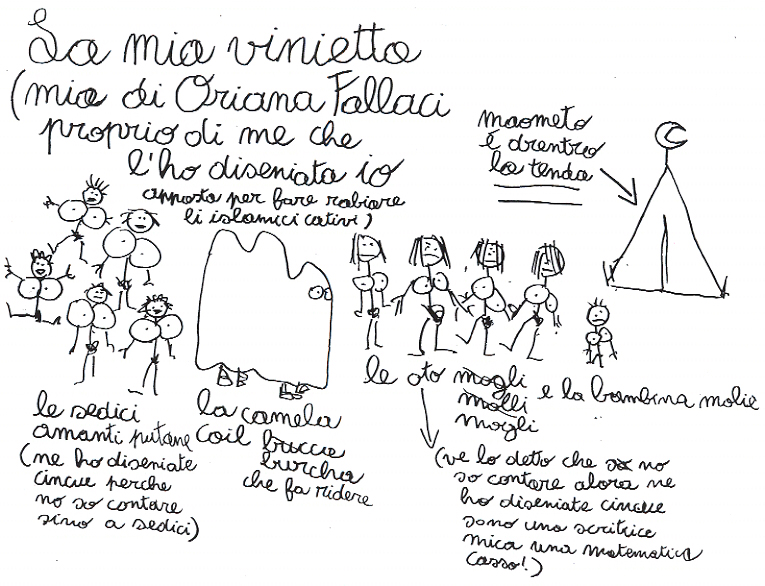 La mia vinietta
(mia di Oriana Fallaci
proprio di me che
l'ho diseniata io
apposta per fare rabiare
li islamici cativi)
maometo
é drentro
la tenda
le sedici
amanti putane
(ne ho diseniate
cincue perche
no so contare
sino a sedici)
la camela
coil bucca
burcha
che fa ridere
le oto mogli
molli
mogli
e la bambina molie
(ve lo detto che so no
so contare alora ne
ho diseniate cincue
sono una scritrice
mica una matematica
casso!)